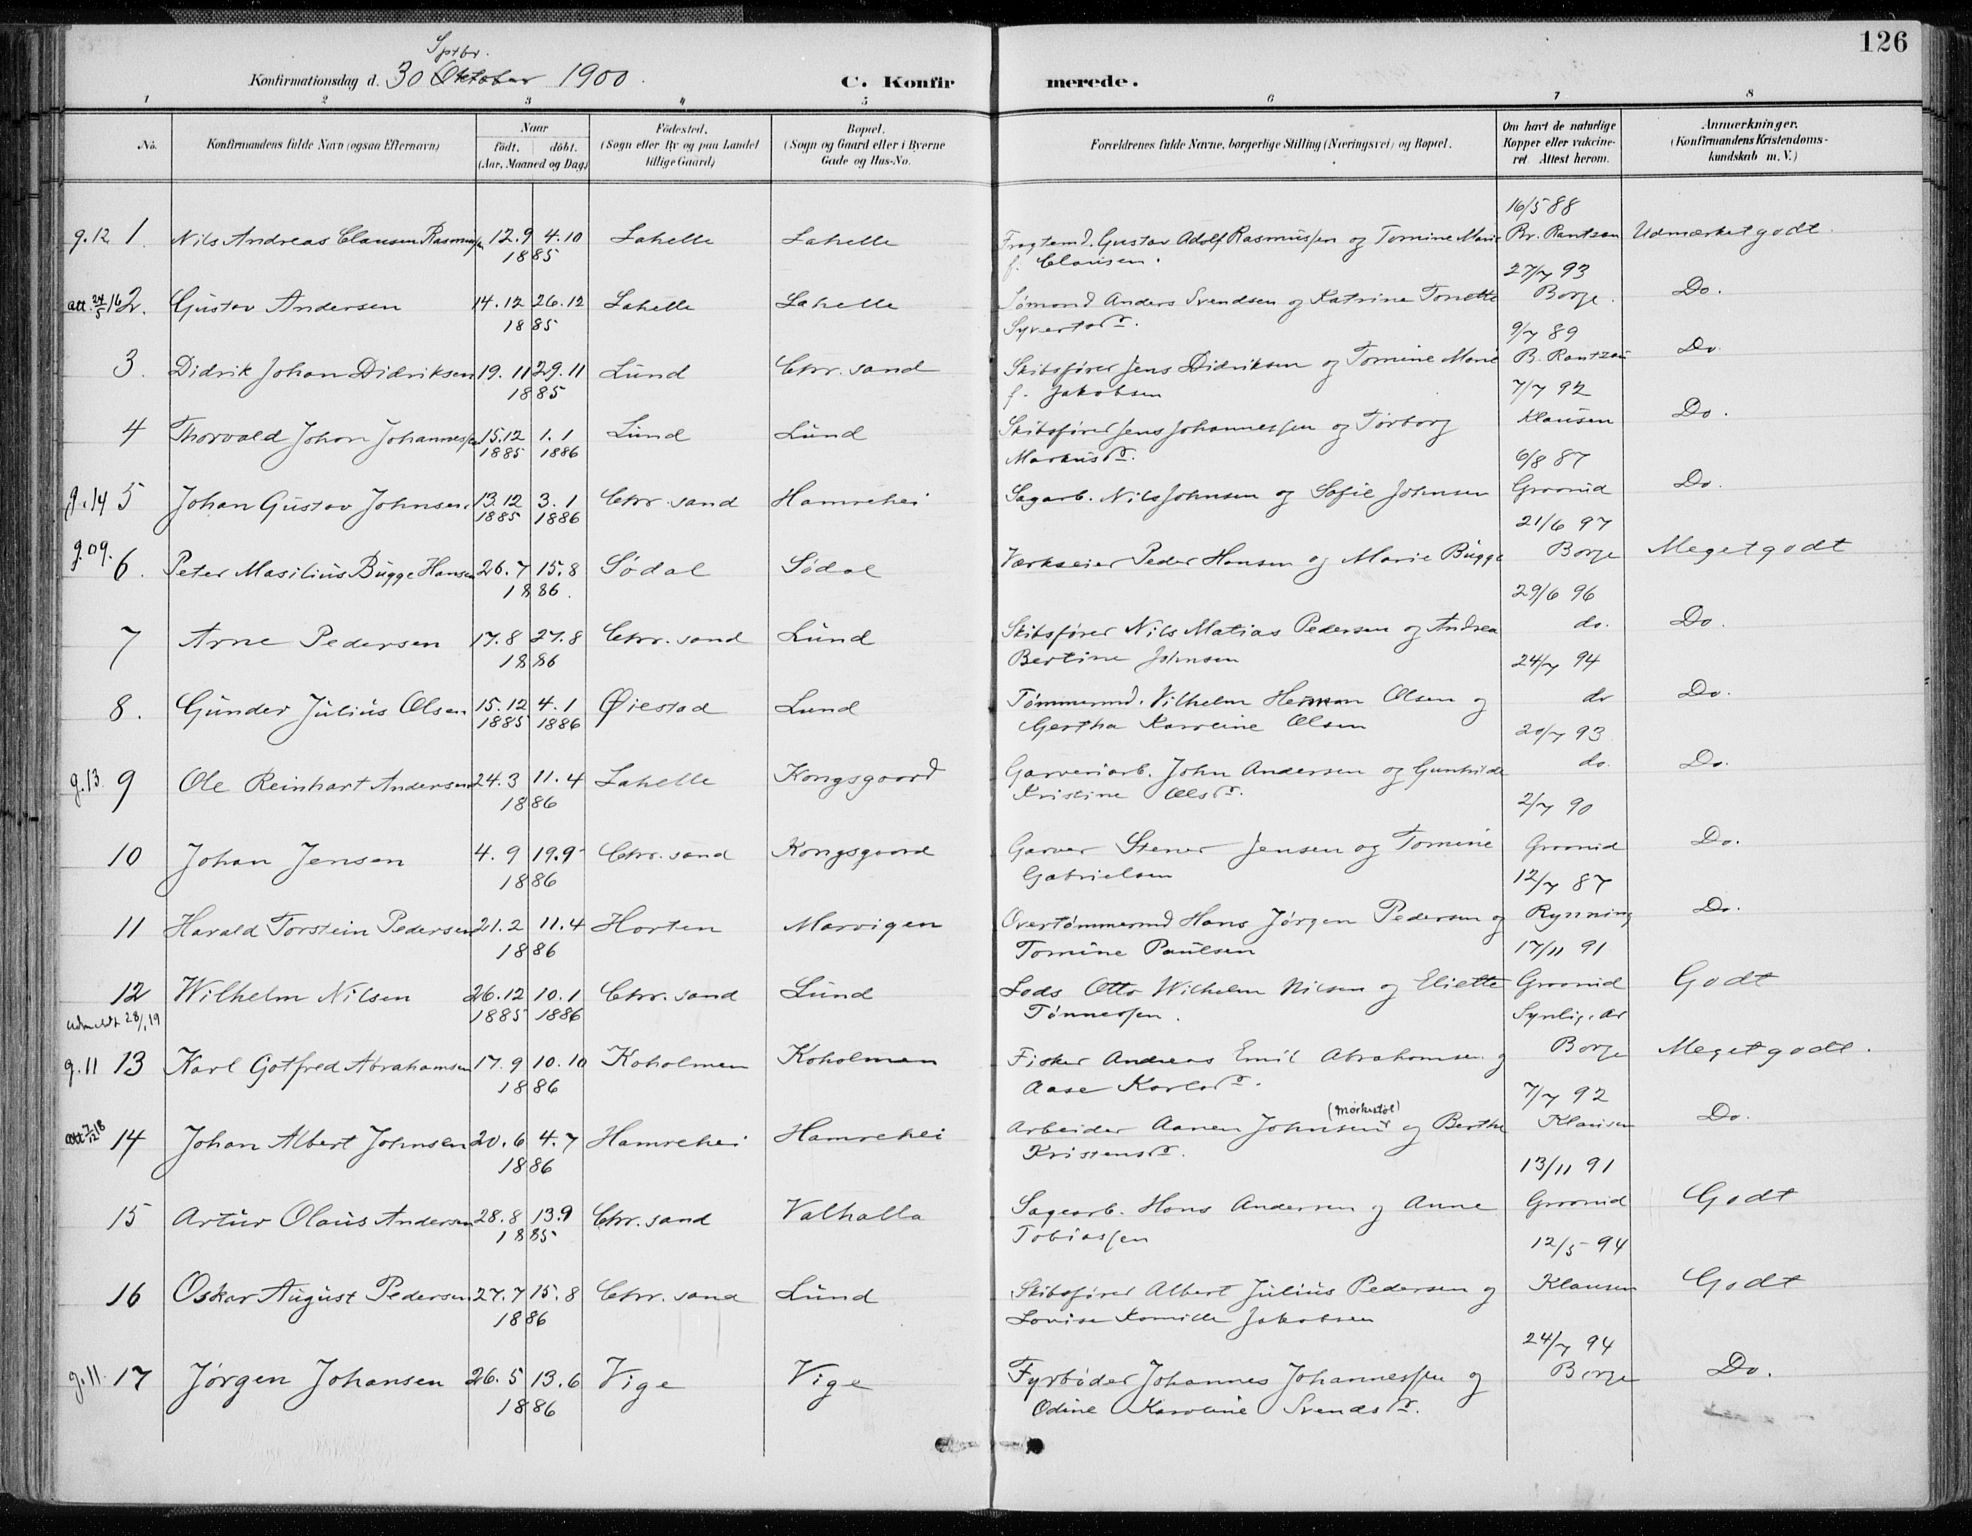 126
Sptbr.
Konfirmationsdag d. 30 Oktober 1900. C. Konfirmerede.
1 2 3 4 5 6 7 8
No. Konfirmandens fulde Navn (ogsaa Efternavn) Naar födt. döbt. (Aar, Maaned og Dag) Födested. (Sogn eller By og paa Landet tillige Gaard) Bopæl. (Sogn og Gaard eller i Byerne Gade og Hus-No. Forældrenes fulde Navne, borgerlige Stilling (Næringsvei) og Bopæl. Om havt de naturlige Kopper eller vakcineret. Attest herom. Anmærkninger. (Konfirmandens Kristendomskundskab m. V.)
16/5 88
g.12 1. Nils Andreas Clausen Rasmussen 12.9 4.10 Lahelle Lahelle Fragtemd. Gustav Adolf Rasmussen og Tomine Marie Br. Rantzau Udmærket godt.
1885 f. Clausen. 27/7 93
att. 24/5 16 2. Gustav Andersen 14.12 26.12 Lahelle Lahelle Sømand Anders Svendsen og Katrine Tonette Borge. Do.
1885 Syvertsdr. 9/7 89
3. Didrik Johan Didriksen 19.11 29.11 Lund Chr.sand Skibsfører Jens Didriksen og Tomine Marie B. Rantzau Do.
1885 f. Jakobsen 7/7 92
4 Thorvald Johan Johannessen 15.12 1.1 Lund Lund Skibsfører Jens Johannessen og Torborg Klausen Do.
1885 1886 Markusdr. 6/8 87
g.14 5 Johan Gustav Johnsen. 13.12 3.1 Chr.sand Hamrehei Sagarb. Nils Johnsen og Sofie Johnsen Groonid Do.
1885 1886 21/6 97
g.09. 6. Peter Masilius Bugge Hansen 26.7 15.8 Sødal Sødal Værkseier Peder Hansen og Marie Bugge Borge Meget godt
1886. 29/6 96
7 Arne Pedersen 17.8 27.8 Chr.sand Lund Skibsfører Nils Matias Pedersen og Andrea do. Do.
1886 Bertine Johnsen 24/7 94
8. Gunder Julius Olsen 15.12 4.1 Øiestad Lund Tømmermd. Vilhelm Herman Olsen og do Do.
1885 1886 Gertha Karoline Olsen 20/7 93
g.13 9 Ole Reinhart Andersen 24.3 11.4 Lahelle Kongsgaard Garveriarb. John Andersen og Gunhilde do. Do.
1886 Kristine Olsdr. 2/7 90
10 Johan Jensen 4.9 19.9 Chr.sand Kongsgaard Garver Stener Jensen og Tomine Groonid Do.
1886 Gabrielsen 12/7 87
11 Harald Torstein Pedersen 21.2 11.4 Horten Marvigen Overtømmermd Hans Jørgen Pedersen og Rynning Do.
1886 Tomine Paulsen 17/11 91
12 Wilhelm Nilsen 26.12 10.1 Chr.sand Lund Lods Otto Wilhelm Nilsen og Eliette Groonid Godt
udmeldt 28/1 19 1885 1886 Tønnessen. Synlig. ar
g.11 13 Karl Gotfred Abrahamsen 17.9 10.10 Koholmen Koholmen Fisker Andreas Emil Abrahamsen og Borge Meget godt.
1886 Aase Karlsdr. 7/7 92
Att 7/12 18 14 Johan Albert Johnsen 20.6 4.7 Hamrehei Hamrehei Arbeider Aanen Johnsen (Mørkestøl) og Berthe Klausen Do.
1886 Kristensdr. 13/11 91
15 Artur Olaus Andersen 28.8 13.9 Chr.sand Valhalla Sagearb. Hans Andersen og Anne Groonid Godt
1885 Tobiassen 12/5 94
16 Oskar August Pedersen 27.7 15.8 Chr.sand Lund Skibsfører Albert Julius Pedersen og Klausen Godt
1886 Lovise Kamille Jakobsen 24/7 94
g.11. 17 Jørgen Johansen 26.5 13.6 Vige Vige Fyrbøder Johannes Johannessen og Borge Do.
1886 Odine Karoline Svendsdr.